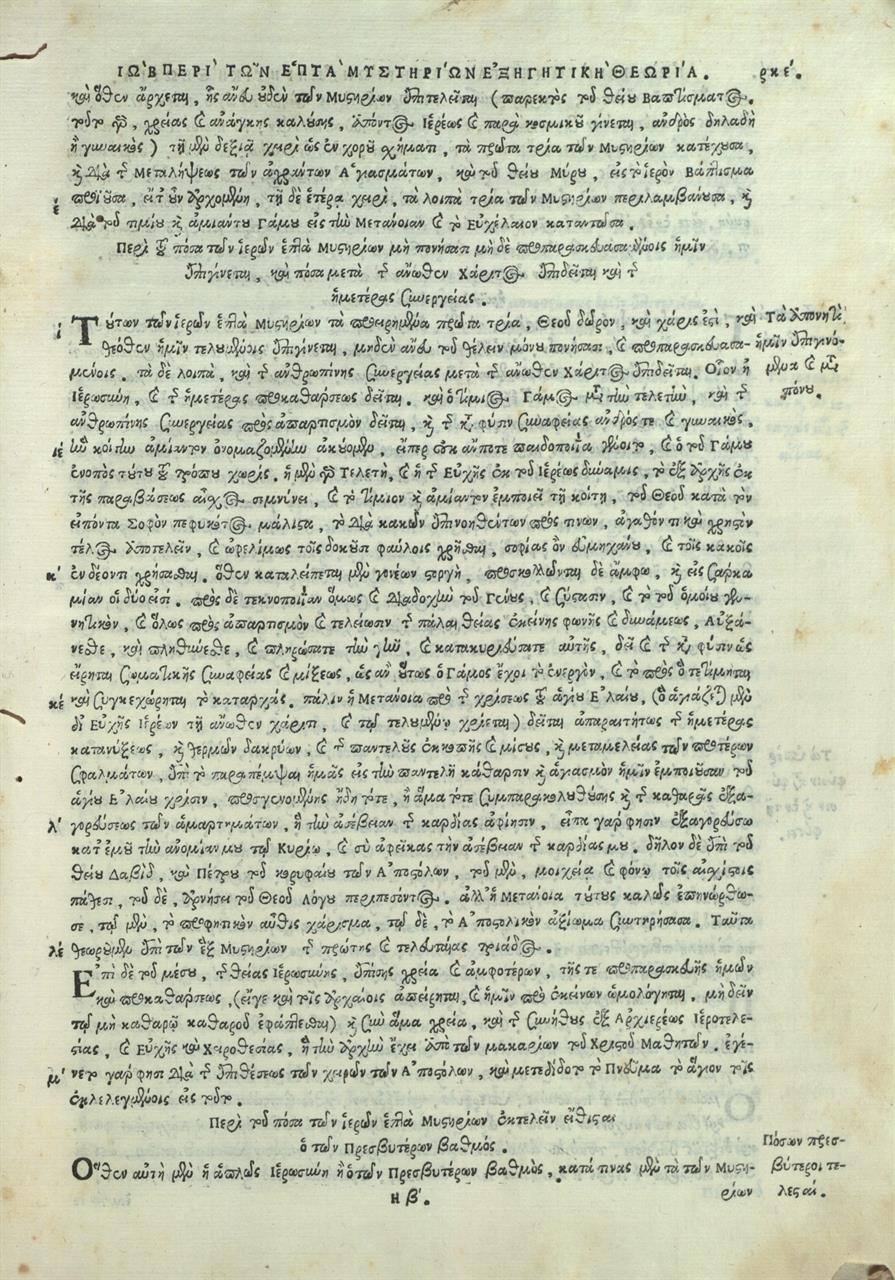 ΙΩ'Β ΠΕΡΙ' ΤΩ͂Ν Ε'ΠΤΑ' ΜΥΣΤΗΡΙ'ΩΝ Ε'ΞΗΓΗΤΙΚΗ' ΘΕΩΡΙ'Α. ρκέ.
καὶ ὅθεν ἄρχεται, ἧς ἄνευ οὐδὲν τῶν Μυστηρίων ἐπιτελεῖται (παρεκτὸς τοῦ θείου Βαπτίσματος.
τοῦτο γὰρ, χρείας καὶ ἀνάγκης καλούσης, ἀπόντος Ἱερέως καὶ παρὰ κοσμικοῦ γίνεται, ἀνδρὸς δηλαδὴ
ἢ γυναικὸς) τῇ μὲν δεξιᾷ χειρὶ ὡς ἐν χοροῦ σχήματι, τὰ πρῶτα τρία τῶν Μυστηρίων κατέχουσα,
καὶ διὰ τῆς Μεταλήψεως τῶν ἀχράντων Ἁγιασμάτων, καὶ τοῦ θείου Μύρου, εἰς τὸ ἱερὸν Βάπτισμα
έ
τῇ δὲ ἑτέρᾳ χειρὶ, τὰ λοιπὰ τρία τῶν Μυστηρίων περιλαμβάνουσα, καὶ
διὰ τοῦ τιμίου καὶ ἀμιάντου Γάμου εἰς τὴν Μετάνοιαν καὶ τὸ Εὐχέλαιον καταντῶσα.
Περὶ τοῦ πόσα τῶν ἱερῶν ἑπτὰ Μυστηρίων μὴ πονήσασι μὴ δὲ προπαρασκευασαμένοις ἡμῖν
ἐπιγίνεται, καὶ πόσα μετὰ τῆς ἄνωθεν Χάριτος ἐπιδεῖται καὶ τῆς
ἡμετέρας συνεργείας.
ί Τούτων τῶν ἱερῶν ἑπτὰ Μυστηρίων τὰ προειρημένα πρῶτα τρία, Θεοῦ δῶρον, καὶ χάρις ἐστὶ, καὶ Τὰ ἀπονητὶ
θεόθεν ἡμῖν τελουμένοις ἐπιγίνεται, μηδὲν ἄνευ τοῦ θέλειν μόνου πονήσασι, καὶ προπαρασκευασα- ἡμῖν ἐπιγινό-
μένοις. τὰ δὲ λοιπὰ, καὶ τῆς ἀνθρωπίνης συνεργείας μετὰ τῆς ἄνωθεν Χάριτος ἐπιδεῖται. Οἷον ἡ μενα καὶ μετὰ
Ἱερωσύνη, καὶ τῆς ἡμετέρας προκαθάρσεως δεῖται. καὶ ὁ τίμιος Γάμος μετὰ τὴν τελετὴν, καὶ τῆς πόνου.
ἀνθρωπίνης συνεργείας πρὸς ἀπαρτισμὸν δεῖται, καὶ τῆς κατὰ φύσιν συναφείας ἀνδρός τε καὶ γυναικὸς,
ιέ ἣν κοίτην ἀμίαντον ὀνομαζομένην ἀκούομεν, εἴπερ οὐκ ἄν ποτε παιδοποιΐα γένοιτο, καὶ ὁ τοῦ Γάμου
σκοπὸς τούτου τοῦ τρόπου χωρίς. ἡ μὲν γὰρ Τελετὴ, καὶ ἡ τῆς Εὐχῆς ἐκ τοῦ Ἱερέως δύναμις, τὸ ἐξ ἀρχῆς ἐκ
τῆς παραβάσεως αἶσχος σεμνύνει, καὶ τὸ τίμιον καὶ ἀμίαντον ἐμποιεῖ τῇ κοίτῃ, τοῦ Θεοῦ κατὰ τὸν
εἰπόντα Σοφὸν πεφυκότος μάλιστα, τὸ διὰ κακῶν ἐπινοηθέντων πρός τινων, ἀγαθόν τι καὶ χρηστὸν
τέλος ἀποτελεῖν, καὶ ὠφελίμως τοῖς δοκοῦσι φαύλοις χρῆσθαι, σοφίας ὂν εὐμηχάνου, καὶ τοῖς κακοῖς
κ' ἐν δέοντι χρήσασθαι. ὅθεν καταλείπεται μὲν γονέων στοργὴ, προσκολλῶνται δὲ ἄμφω, καὶ εἰς σάρκα
μίαν οἱ δύο εἰσί. πρὸς δὲ τεκνοποιΐαν ὅμως καὶ διαδοχὴν τοῦ Γένους, καὶ σύστασιν, καὶ τὸ τοῦ ὁμοίου γεν-
νητικὸν, καὶ ὅλως πρὸς ἀπαρτισμὸν καὶ τελείωσιν τῆς πάλαι θείας ἐκείνης φωνῆς καὶ δυνάμεως, Αὐξά-
νεσθε, καὶ πληθύνεσθε, καὶ πληρώσατε τὴν γῆν, καὶ κατακυριεύσατε αὐτῆς, δεῖ καὶ τῆς κατὰ φύσιν ὡς
εἴρηται σωματικῆς συναφείας καὶ μίξεως, ὡς ἂν οὕτως ὁ Γάμος ἔχοι τὸ ἐνεργὸν, καὶ τὸ πρὸς ὃ τετίμηται
κέ καὶ συγκεχώρηται τὸ καταρχάς. πάλιν ἡ Μετάνοια πρὸ τῆς χρίσεως τοῦ ἁγίου Ἐλαίου, (ὃ ἁγιάζεται μὲν
δι' Εὐχῆς Ἱερέων τῇ ἄνωθεν χάριτι, καὶ τῷ τελουμένῳ χρίεται) δεῖται ἀπαραιτήτως τῆς ἡμετέρας
κατανύξεως, καὶ θερμῶν δακρύων, καὶ τῆς παντελοῦς ἐκκοπῆς καὶ μίσους, καὶ μεταμελείας τῶν προτέρων
σφαλμάτων, ἐπὶ τὸ παραπέμψαι ἡμᾶς εἰς τὴν παντελῆ κάθαρσιν καὶ ἁγιασμὸν ἡμῖν ἐμποιοῦσαν τοῦ
ἁγίου Ἐλαίου χρίσιν, προσγενομένης ἤδη τότε, ἢ ἅμα τότε συμπαρακολουθούσης καὶ τῆς καθαρᾶς ἐξα-
λ' γορεύσεως τῶν ἁμαρτημάτων, ἣ τὴν ἀσέβειαν τῆς καρδίας ἀφίησιν, εἶπα γάρ φησιν ἐξαγορεύσω
κατ' ἐμοῦ τὴν ἀνομίαν μου τῷ Κυρίῳ, καὶ σὺ ἀφῆκας τὴν ἀσέβειαν τῆς καρδίας μου. δῆλον δὲ ἐπὶ τοῦ
θείου Δαβὶδ, καὶ Πέτρου τοῦ κορυφαίου τῶν Ἀποστόλων, τοῦ μὲν, μοιχεία καὶ φόνῳ τοῖς αἰσχίστοις
πάθεσι, τοῦ δὲ, ἀρνήσει τοῦ Θεοῦ Λόγου περιπεσόντος. ἀλλ' ἡ Μετάνοια τούτους καλῶς ἐπηνώρθω-
σε, τῷ μὲν, τὸ προφητικὸν αὖθις χάρισμα, τῷ δὲ, τὸ Ἀποστολικὸν ἀξίωμα συντηρήσασα. Ταῦτα
λέ θεωροῦμεν ἐπὶ τῶν ἓξ Μυστηρίων τῆς πρώτης καὶ τελευταίας τριάδος.
Ἐπὶ δὲ τοῦ μέσου, τῆς θείας Ἱερωσύνης, ἐπίσης χρεία καὶ ἀμφοτέρων, τῆς τε προπαρασκευῆς ἡμῶν
καὶ προκαθάρσεως, (εἴγε καὶ τοῖς ἀρχαίοις ἀπείρηται, καὶ ἡμῖν πρὸ ἐκείνων ὡμολόγηται, μὴ δεῖν
τῷ μὴ καθαρῷ καθαροῦ ἐφάπτεσθαι) καὶ σὺν ἅμα χρεία, καὶ τῆς συνήθους ἐξ Ἀρχιερέως Ἱεροτελε-
σίας, καὶ Εὐχῆς καὶ Χειροθεσίας, ἣ τὴν ἀρχὴν ἔχει ἀπὸ τῶν μακαρίων τοῦ Χριστοῦ Μαθητῶν. ἐγέ-
μ' νετο γάρ φησι διὰ τῆς ἐπιθέσεως τῶν χειρῶν τῶν Ἀποστόλων, καὶ μετεδίδοτο τὸ Πνεῦμα τὸ ἅγιον τοῖς
ἐκλελεγμένοις εἰς τοῦτο.
Περὶ τοῦ πόσα τῶν ἱερῶν ἑπτὰ Μυστηρίων ἐκτελεῖν εἴθισται
ὁ τῶν Πρεσβυτέρων βαθμός. Πόσων πρεσ-
Ὅθεν αὐτὴ μὲν ἡ ἁπλῶς Ἱερωσύνη ἢ ὁ τῶν Πρεσβυτέρων βαθμὸς, κατά τινας μὲν τὰ τῶν Μυστη- βύτεροι τε-
ρίων λεσταί.
Η β'.